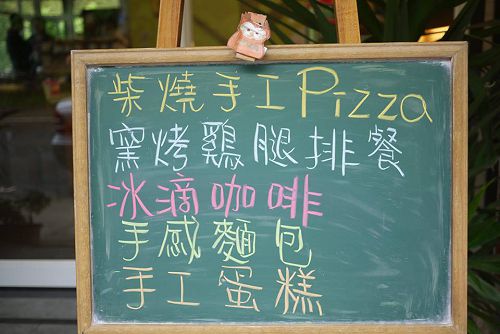 柴燒手工Pizza
窯烤鷄腿排餐
冰滴咖啡
手感麵包
手工蛋糕